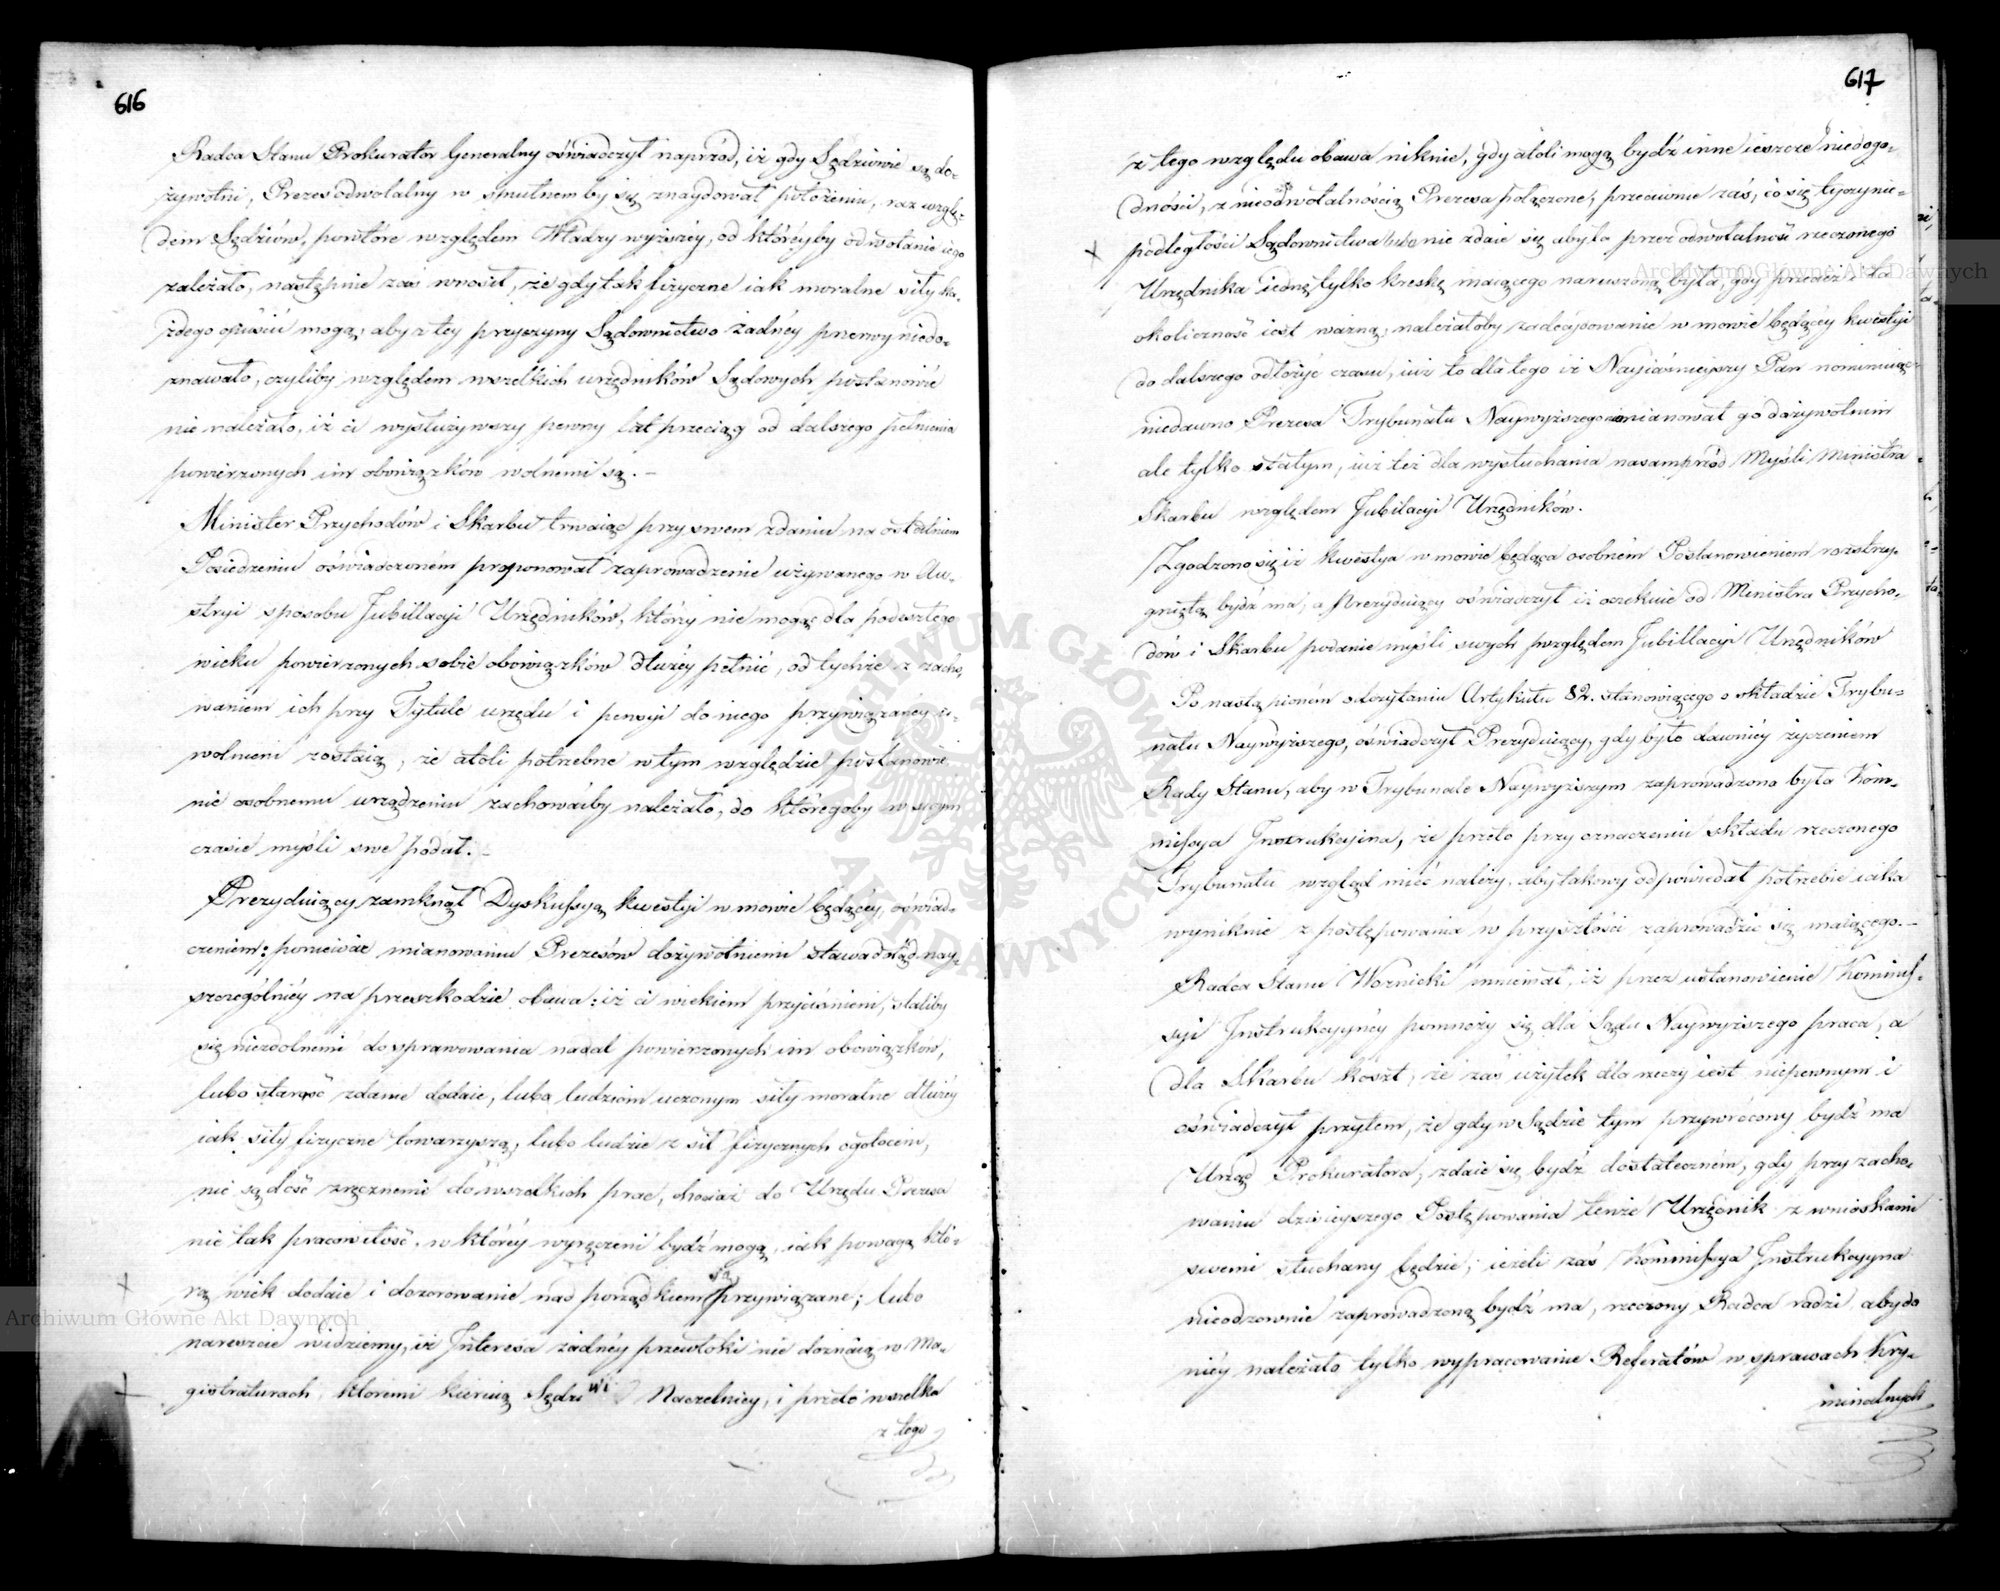 616
Radca Stanu Prokurator Generalny oświadczył naprzód, iż gdy Sędziowie są do-
żywotni, Prezes odwołalny w smutnem by się znaydował położeniu, raz wzglę-
dem Sędziów, powtóre względem Władzy wyższéy, od któréyby odwołanie iego
zależało, następnie zaś wnosił, że gdy tak fizyczne iak moralne siły ka-
żdego opuścić mogą, aby z tey przyczyny Sądownictwo żadnéy przerwy niedo-
znawało, czyliby względem wszelkich urzędników Sądowych postanowić
nie należało, iż ci wysłużywszy pewny lat przeciąg od dalszego pełnienia
powierzonych im obowiązków wolnemi są. -
Minister Przychodów i Skarbu trwaiąc przy swem zdaniu na ostatniem
Posiedzeniu oświadczoném proponował zaprowadzenie używanego w Au-
stryi sposobu Jubillacyi Urzędników, którzy nie mogąc dla podeszłego
wieku powierzonych sobie obowiązków dłużéy pełnić, od tychże z zacho-
waniem ich przy Tytule urzędu i pensyi do niego przywiązanéy u-
wolnieni zostaią, że atoli potrzebne w tym względzie postanowie-
nie osobnemu urządzeniu zachowaćby należało, do któregoby w swym
czasie myśli swe podał. -
Prezyduiący zamknął Dyskussyą kwestyi w mowie będącéy, oświad-
czeniem: ponieważ mianowaniu Prezesów dożywotniemi stawa dotąd nay-
szczególniéy na przeszkodzie obawa: iż ci wiekiem przyciśnieni, staliby
się niezdolnemi do sprawowania nadal powierzonych im obowiązków,
lubo starość zdanie dodaie, lubo ludziom uczonym siły moralne dłużéy
iak siły fizyczne towarzyszą, lubo ludzie z sił fizycznych ogołoceni,
nie są dość zręcznemi do wszelkich prac, chociaż do Urzędu Prezesa
nie tak pracowitość, w któréy wyręczeni bydź mogą, iak powaga któ-
rą wiek dodaie i dozorowanie nad porządkiem są przywiązane; lubo
nareszcie widziemy, iż Interesa żadnéy przewłoki nie doznaią w Ma-
gistraturach, któremi kieruią Sędziwi Naczelnicy, i przeto wszelka
z tego
617
z tego względu obawa niknie, gdy atoli mogą bydź inne ieszcze niedogo-
dności, z nieodwołalnością Prezesa połączone, przeciwnie zaś, co się tycze nie-
podległości Sądownictwa lubo nie zdaie się aby ta przez odwołalność rzeczonego
Urzędnika iednę tylko kreskę maiącego naruszoną była, gdy przecież i ta
okoliczność iest ważną, należałoby zadecydowanie w mowie będącéy kwestyi
do dalszego odłożyć czasu, iuż to dla tego iż Nayiaśnieyszy Pan nominuiąc
niedawno Prezesa Trybunału Naywyższego nie mianował go dożywotnim
ale tylko stałym, iuż też dla wysłuchania nasamprzód Myśli Ministra
Skarbu względem Jubilacyi Urzędników.
Zgodzono się iż kwestya w mowie będąca osobném Postanowieniem rozstrzy-
gniętą bydź ma, a Prezyduiący oświadczył iż oczekuie od Ministra Przycho-
dów i Skarbu podanie myśli swych względem Jubillacyi Urzędników
Po nastąpioném odczytaniu Artykułu 82. stanowiącego o składzie Trybu-
nału Naywyższego, oświadczył Prezyduiący, gdy było dawniéy życzeniem
Rady Stanu, aby w Trybunale Naywyższym zaprowadzona była Kom-
missya Instrukcyina, że przeto przy oznaczeniu składu rzeczonego
Trybunału wzgląd mieć należy, aby takowy odpowiedał potrzebie iaka
wyniknie z postępowania w przyszłości zaprowadzić się maiącego. -
Radca Stanu Woznicki mniemał, iż przez ustanowienie Kommis-
syi Instrukcyynéy pomnoży się dla Sądu Naywyższego praca, a
dla Skarbu koszt, że zaś użytek dla rzeczy iest niepewnym i
oświadczył przytem, że gdy w Sądzie tym przywrócony bydź ma
Urząd Prokuratora, zdaie się bydź dostateczném, gdy przy zacho-
waniu dzisieyszego Postępowania tenże Urzędnik z wnioskami
swemi słuchany będzie; ieżeli zaś Kommissya Instrukcyyna
nieodzownie zaprowadzoną bydź ma, rzeczony Radca radzi aby do
niéy należało tylko wypracowanie Referatów w sprawach Kry-
minalnych
Archiwum Główne Akt Dawnych
Archiwum Główne Akt Dawnych
ARCHIWUM GŁÓWNE AKT DAWNYCH